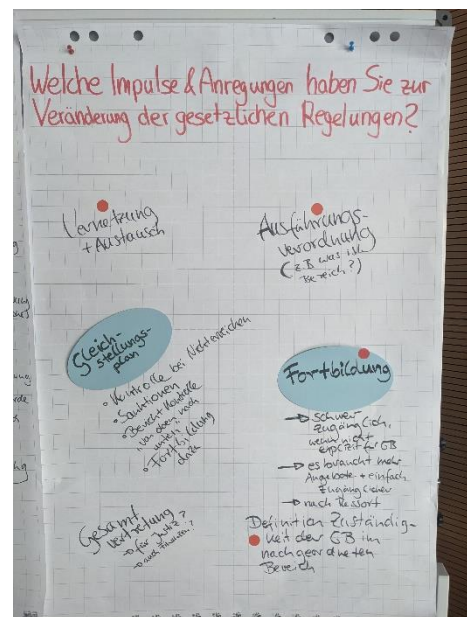 Welche Impulse & Anregungen haben Sie zur
Veränderung der gesetzlichen Regelungen?
Vernetzung
+ Austausch
Ausführungs-
verordnung
(z.B was ist
Bereich?)
Gleich-
stellungs-
plan
• Kontrolle bei Nichterreichen
• Sanktionen
• Bericht Kontrolle
von oben nach
unten
• Fortbildung
dazu
Fortbildung
→ schwer
zugänglich,
wenn nicht
explizit für GB
→ es braucht mehr
Angebote + einfach
zugänglicher
→ nach Ressort
Gesamt
vertretung
→ für Justiz?
→ auch Finanzen?
Definition Zuständig-
keit der GB im
nachgeordneten
Bereich